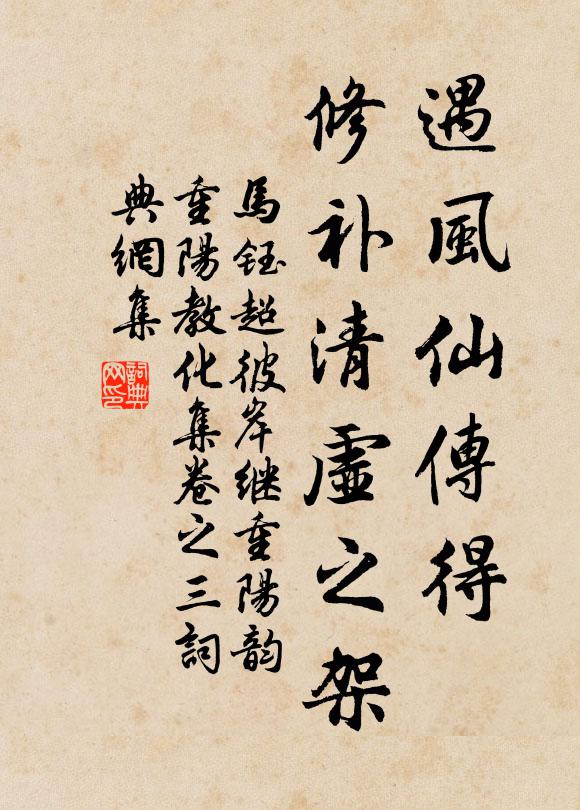 遇風仙傳得
修补清虛之架
馬鈺超彼岸继重陽韵
重陽教化集卷之三詞
典網集
詞典网印